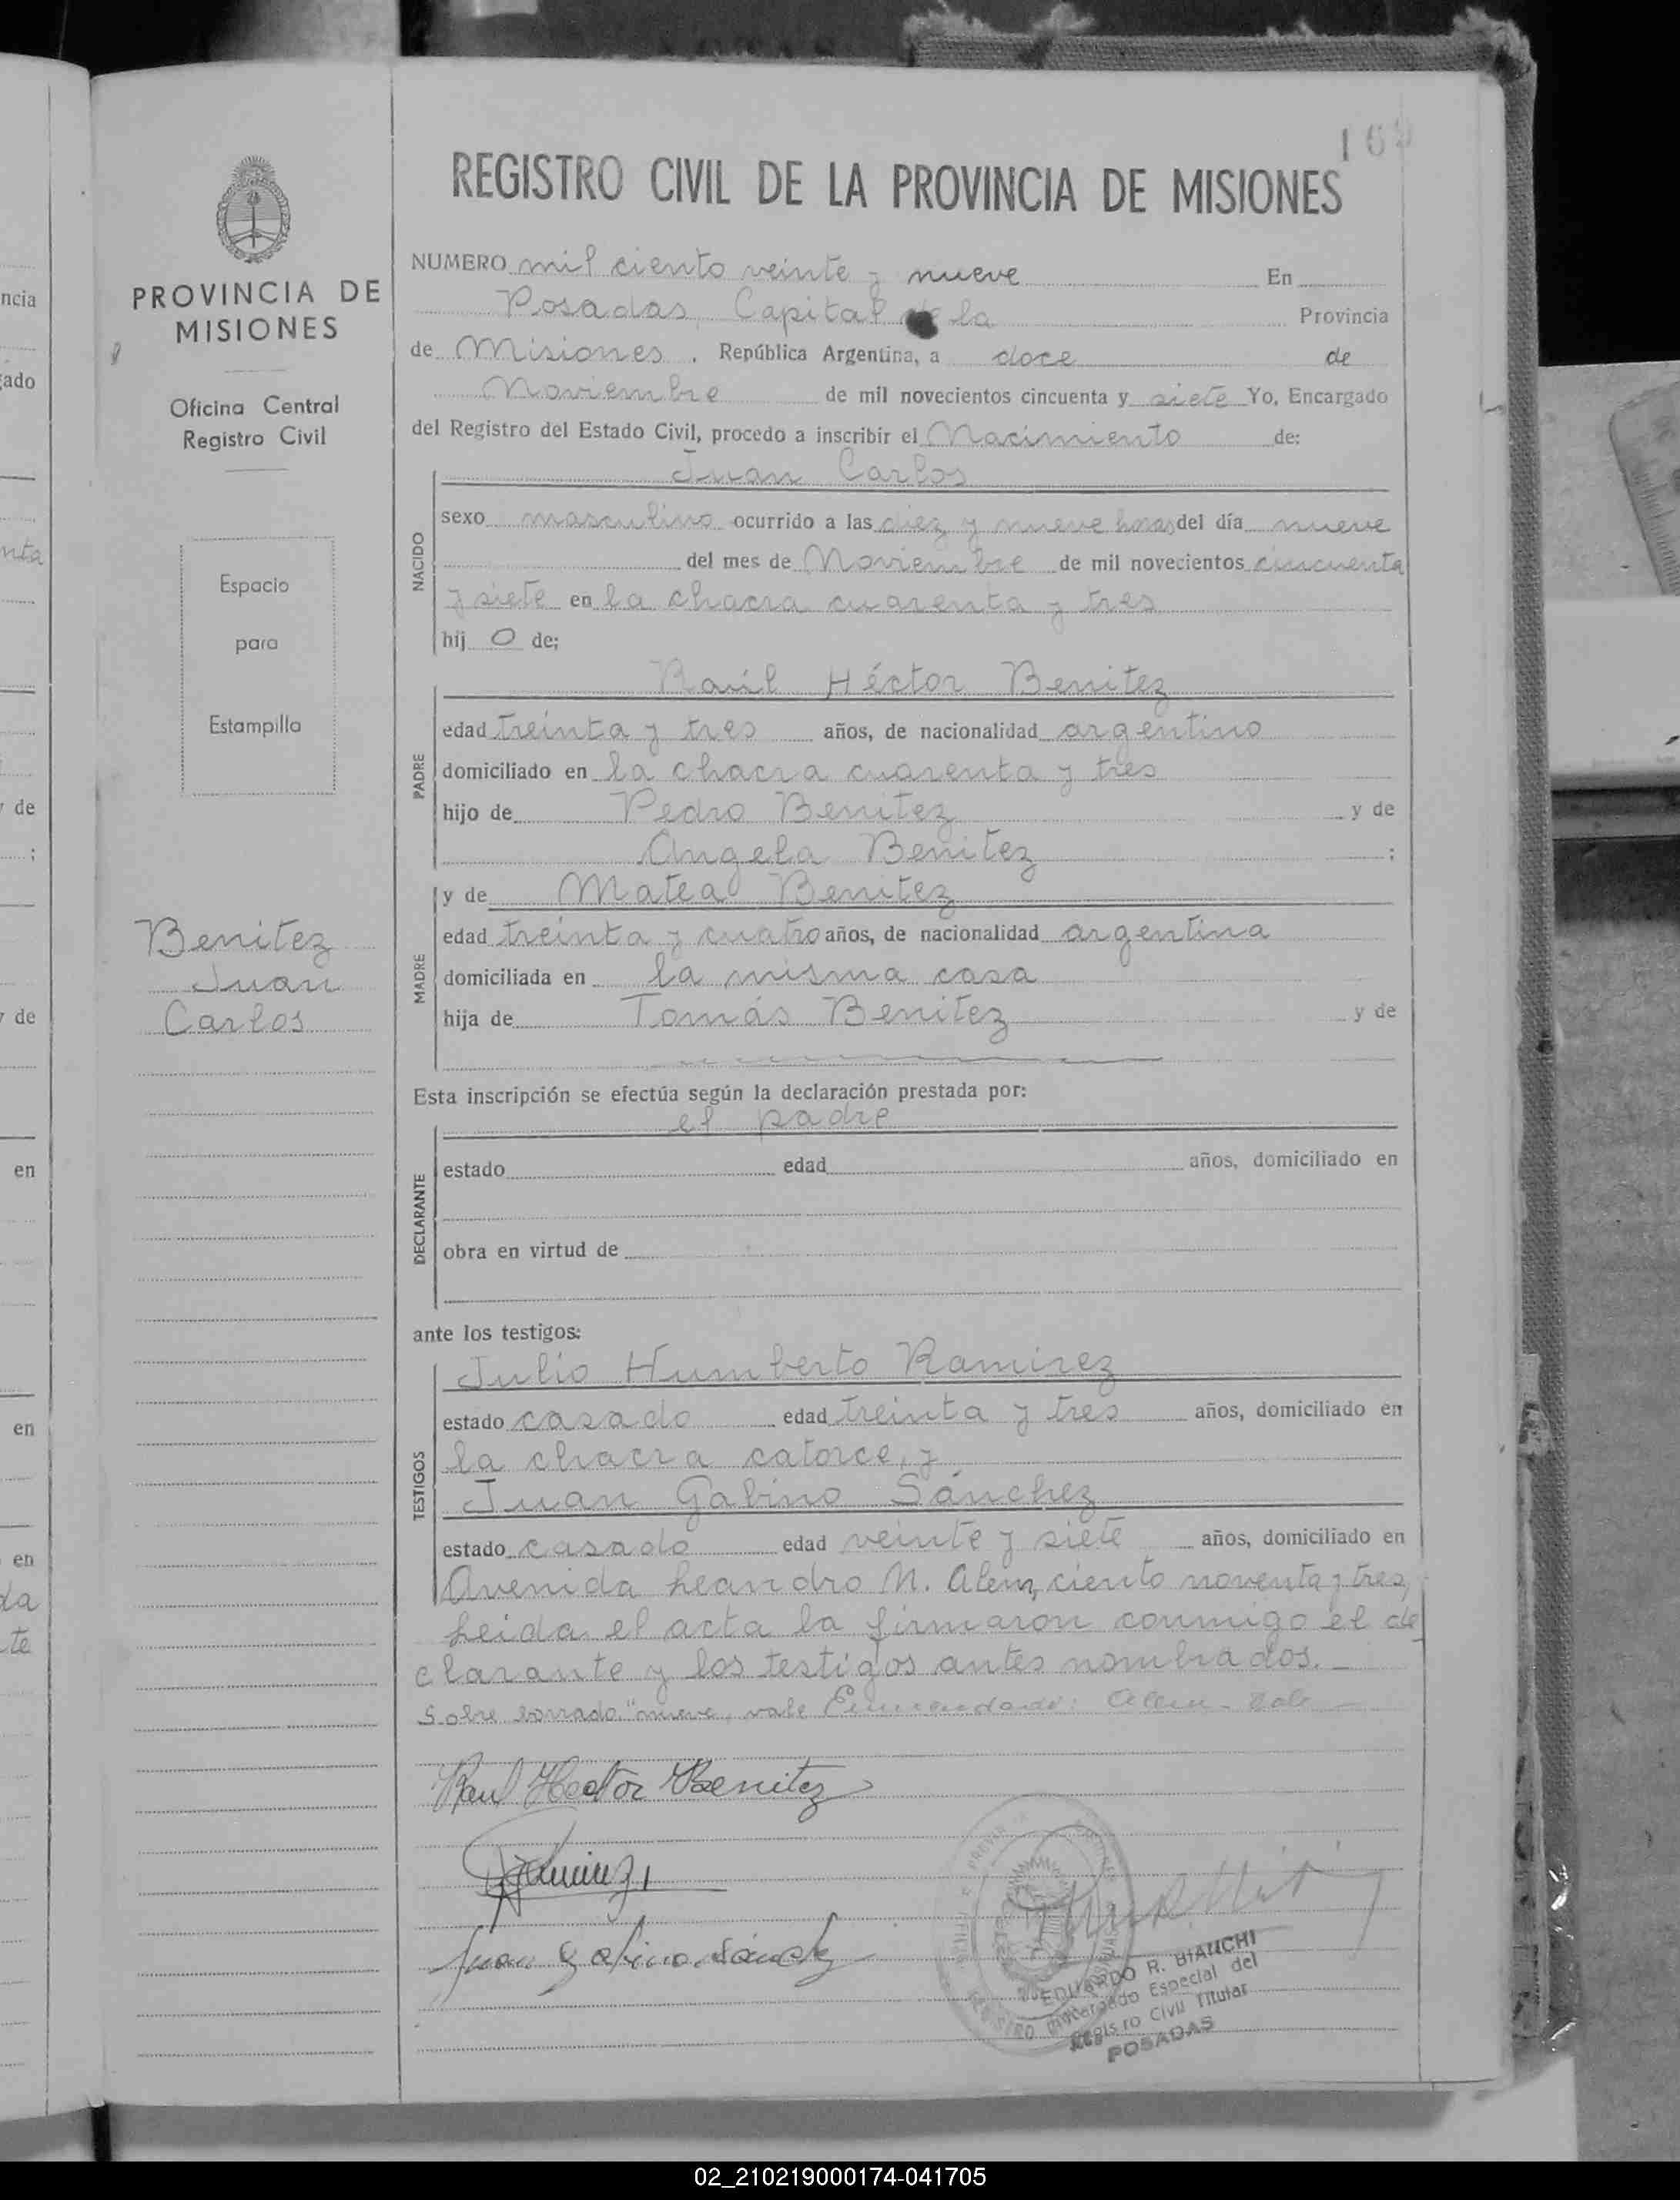 REGISTRO CIVIL DE LA PROVINCIA DE MISIONES
PROVINCIA DE
MISIONES
Oficina Central
Registro Civil
Espacio
para
Estampilla
Benitez
Juan
Carlos
NUMERO mil ciento veinte y nueve En
Posadas, Capital de la Provincia
de Misiones, República Argentina, a doce de
Noviembre de mil novecientos cincuenta y siete Yo, Encargado
del Registro del Estado Civil, procedo a inscribir el Nacimiento de:
Juan Carlos
NACIDO
sexo masculino ocurrido a las diez y nueve horas del día nueve
del mes de Noviembre de mil novecientos cincuenta
y siete en la chacra cuarenta y tres
hij o de;
Raúl Héctor Benitez
PADRE
edad treinta y tres años, de nacionalidad argentino
domiciliado en la chacra cuarenta y tres
hijo de Pedro Benitez y de
Angela Benitez ;
y de Matea Benitez
MADRE
edad treinta y cuatro años, de nacionalidad argentina
domiciliada en la misma casa
hija de Tomás Benitez y de
Esta inscripción se efectúa según la declaración prestada por:
el padre
DECLARANTE
estado edad años, domiciliado en
obra en virtud de
ante los testigos:
Julio Humberto Ramirez
TESTIGOS
estado casado edad treinta y tres años, domiciliado en
la chacra catorce, y
Juan Gabino Sánchez
estado casado edad veinte y siete años, domiciliado en
Avenida Leandro N. Alem, ciento noventa y tres,
Leida el acta la firmaron conmigo el de
clarante y los testigos antes nombrados.
Sobre borrado "nueve, vale Enmendado: Alem - Vale
Raul Hector Benitez
Ramirez
Juan Gabino Sánchez
EDUARDO R. BIANCHI
Encargado Especial del
Registro Civil Titular
POSADAS
02_210219000174-041705